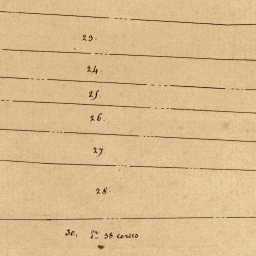 23.
24.
25.
26.
27
28.
30. 38